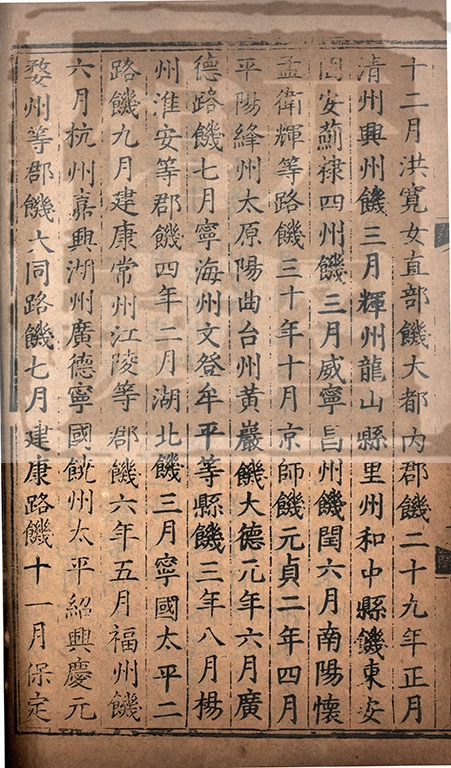 十二月洪寬女直部饑大都內郡饑二十九年正月
清州興州饑三月輝州龍山縣里州和中縣饑東安
固安薊棣四州饑三月威寧昌州饑閏六月南陽懷
孟衛輝等路饑三十年十月京師饑元貞二年四月
平陽絳州太原陽曲台州黃巖饑大德元年六月廣
德路饑七月寧海州文登牟平等縣饑三年八月楊
州淮安等郡饑四年二月湖北饑三月寧國太平二
路饑九月建康常州江陵等郡饑六年五月福州饑
六月杭州嘉興湖州廣德寧國饒州太平紹興慶元
婺州等郡饑大同路饑七月建康路饑十一月保定